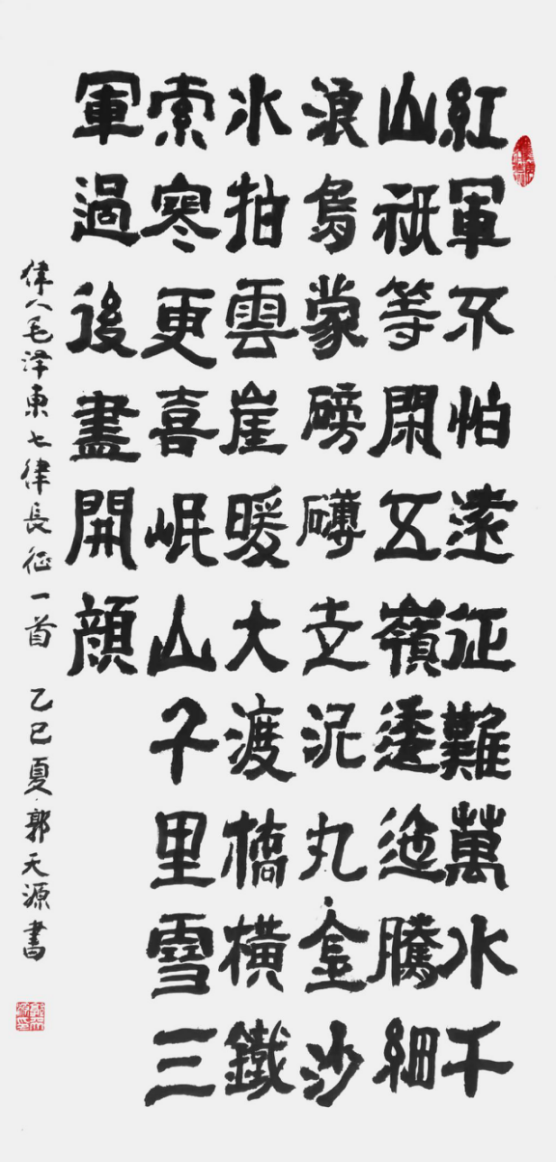 紅軍不怕遠征難萬水千
山祇等閑五嶺逶迤騰細
浪烏蒙磅礴走泥丸金沙
水拍雲崖暖大渡橋橫鐵
索寒更喜岷山千里雪三
軍過後盡開顏
偉人毛泽東七律長征一首 乙巳夏郭天源書